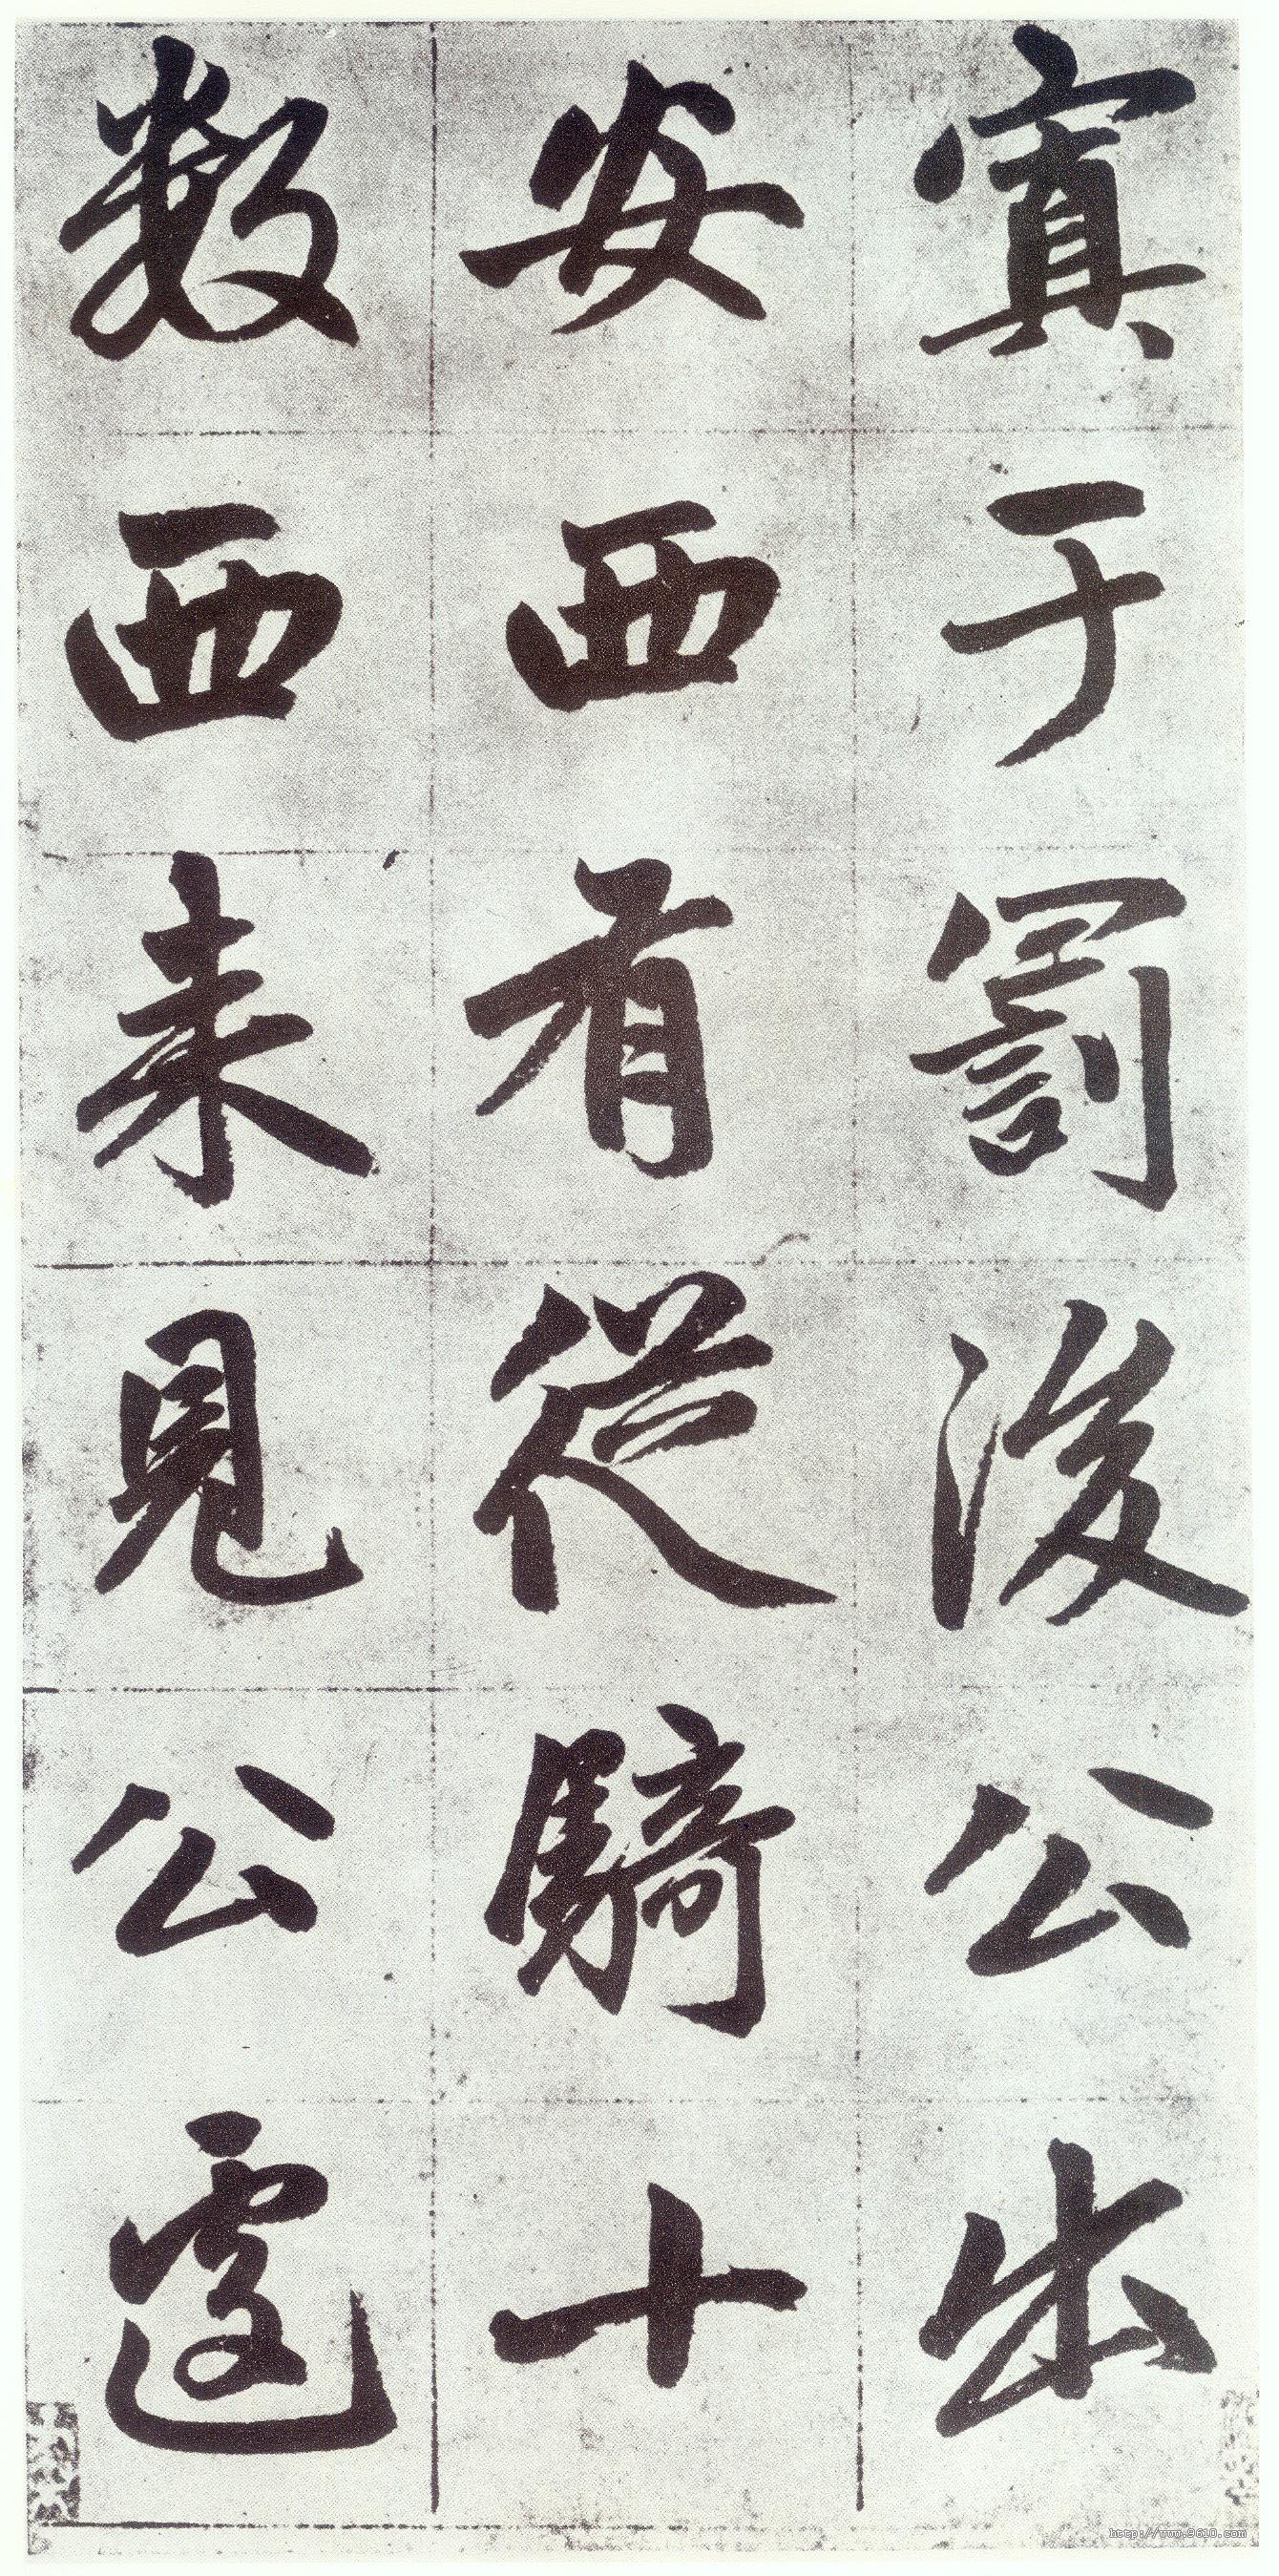 寘于罰後公出
安西有從騎十
數西来見公遽
http://www.9610.com